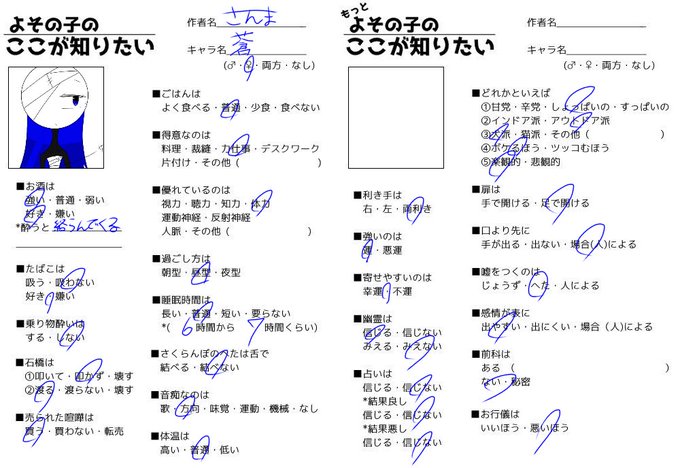 よその子の
ここが知りたい
作者名 さんま
キャラ名 蒼
(♂・♀・両方・なし)
■お酒は
強い・普通・弱い
好き・嫌い
*酔うと 絡んでくる
■たばこは
吸う・吸わない
好き・嫌い
■乗り物酔いは
する・しない
■石橋は
①叩いて・叩かず・壊す
②渡る・渡らない・壊す
■売られた喧嘩は
買う・買わない・転売
■ごはんは
よく食べる・普通・少食・食べない
■得意なのは
料理・裁縫・力仕事・デスクワーク
片付け・その他( )
■優れているのは
視力・聴力・知力・体力
運動神経・反射神経
人脈・その他( )
■過ごし方は
朝型・昼型・夜型
■睡眠時間は
長い・普通・短い・要らない
*( 6時間から 7時間くらい)
■さくらんぼのへたは舌で
結べる・結べない
■音痴なのは
歌・方向・味覚・運動・機械・なし
■体温は
高い・普通・低い
もっと
よその子の
ここが知りたい
作者名
キャラ名
(♂・♀・両方・なし)
■利き手は
右・左・両利き
■強いのは
運・悪運
■寄せやすいのは
幸運・不運
■幽霊は
信じる・信じない
みえる・みえない
■占いは
信じる・信じない
*結果良し
信じる・信じない
*結果悪し
信じる・信じない
■どれかといえば
①甘党・辛党・しょっぱいの・すっぱいの
②インドア派・アウトドア派
③犬派・猫派・その他( )
④ボケるほう・ツッコむほう
⑤楽観的・悲観的
■扉は
手で開ける・足で開ける
■口より先に
手が出る・出ない・場合(人)による
■嘘をつくのは
じょうず・へた・人による
■感情が表に
出やすい・出にくい・場合(人)による
■前科は
ある ( )
ない・秘密
■お行儀は
いいほう・悪いほう